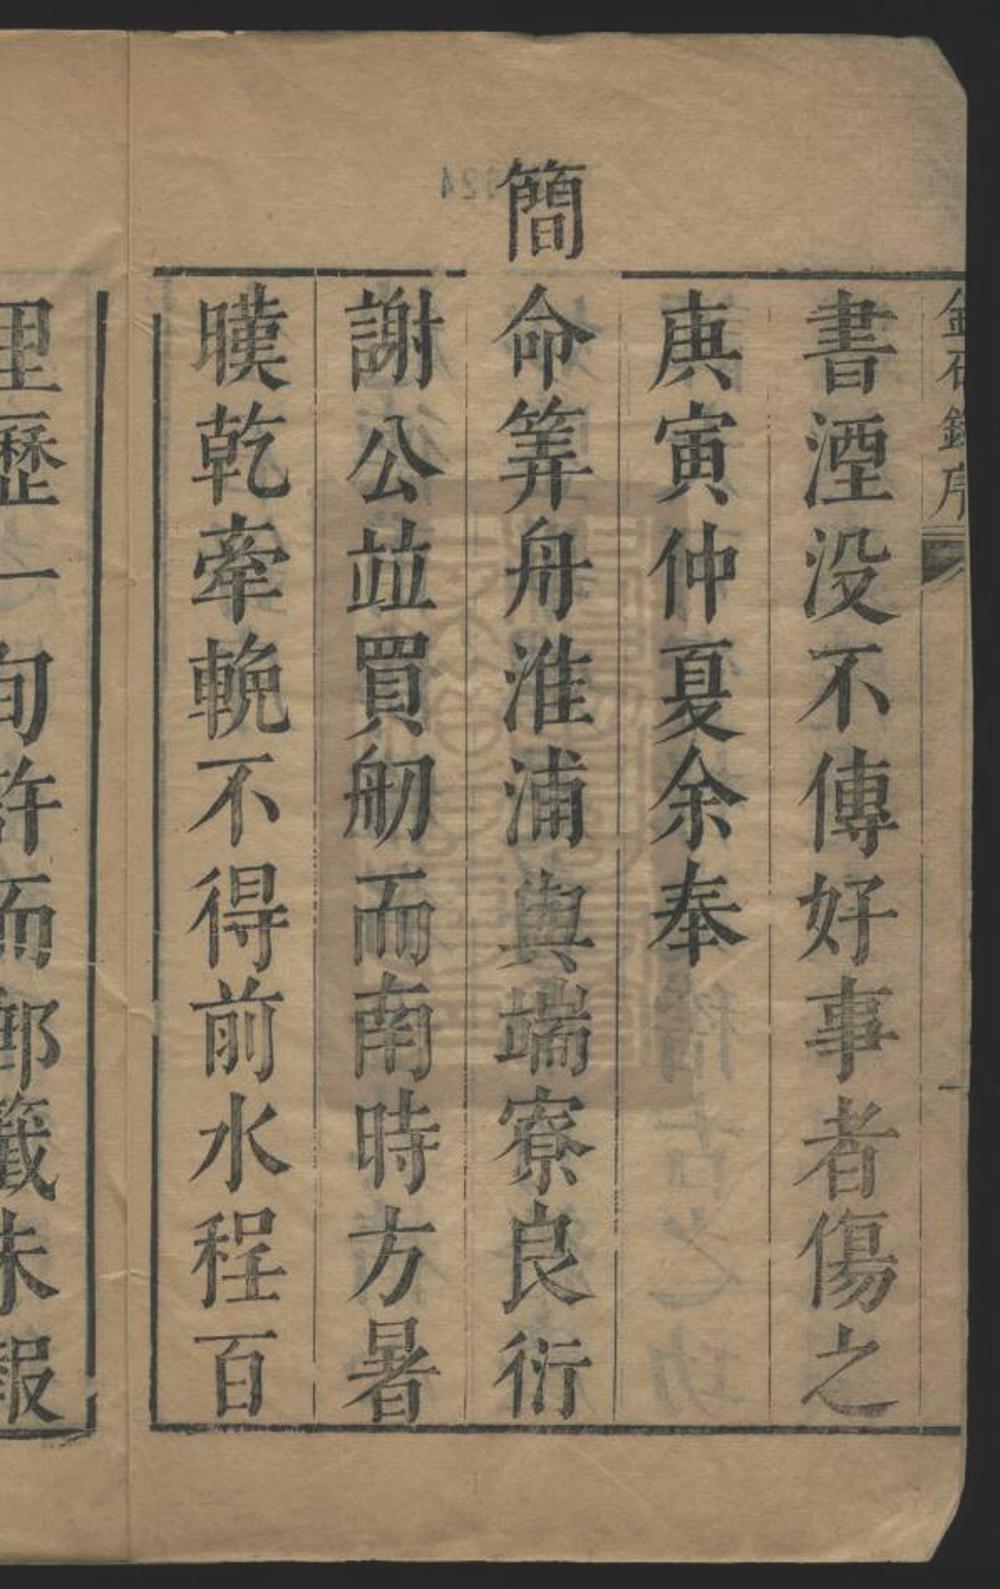 書湮没不傳好事者傷之
庚寅仲夏余奉
簡命筭舟淮浦與端寮良衍
謝公竝買舠而南時方暑
暵乾牽輓不得前水程百
里歷一旬許而郵籤未報